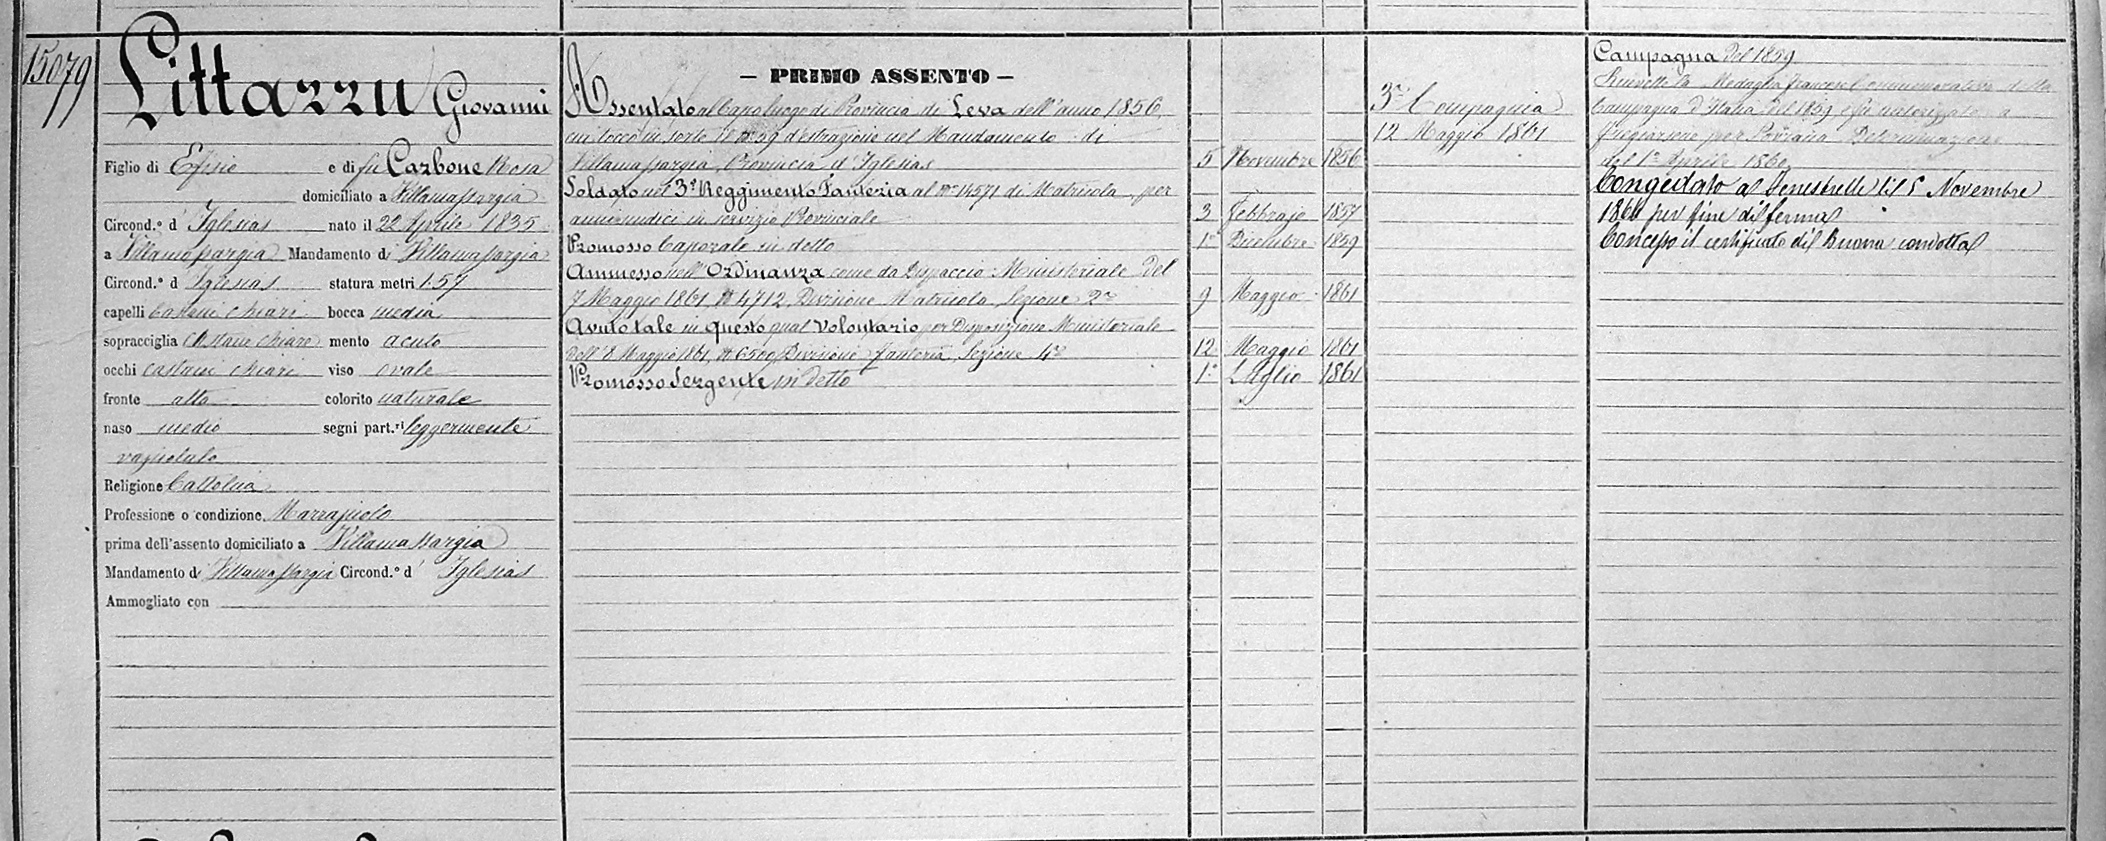 15079
Littazzu Giovanni
Figlio di Efisio e di fu Carbone Rosa
domiciliato a Villamassargia
Circond.º d' Iglesias nato il 22 Aprile 1835
a Villamassargia Mandamento di Villamassargia
Circond.º d Iglesias statura metri 1.57
capelli Castani chiari bocca media
sopracciglia Castane chiare mento acuto
occhi castani chiari viso ovale
fronte alta colorito naturale
naso medio segni part.ri leggermente
vajuolato
Religione Cattolica
Professione o condizione Marrajuolo
prima dell'assento domiciliato a Villamassargia
Mandamento di Villamassargia Circond.º d' Iglesias
Ammogliato con
— PRIMO ASSENTO —
Assentato al Capoluogo di Provincia di Leva dell'anno 1856,
cui toccò in sorte il Nº 59 d'estrazione nel Mandamento di
Villamassargia, Provincia d'Iglesias 5 Novembre 1856
Soldato nel 3º Reggimento Fanteria al Nº 14571 di Matricola per
anni undici in servizio Provinciale 3 Febbrajo 1857
Promosso Caporale in detto 1º Dicembre 1859
Ammesso nell'Ordinanza come da Dispaccio Ministeriale del
7 Maggio 1861, Nº 4712, Divisione Matricola, Sezione 2ª 9 Maggio 1861
Avuto tale in questo qual Volontario per Disposizione Ministeriale
dell'8 Maggio 1861, Nº 6500, Divisione Fanteria, Sezione 4ª 12 Maggio 1861
Promosso Sergente in detto 1º Luglio 1861
3ª Compagnia
12 Maggio 1861
Campagna del 1859
la Medaglia francese Commemorativa della
Campagna d'Italia del 1859 e fu autorizzato a
fregiarsene per Sovrana Determinazione
del 1º Aprile 1860
Congedato a Fenestrelle li 5 Novembre
per fine di ferma
Concesso il certificato di Buona condotta